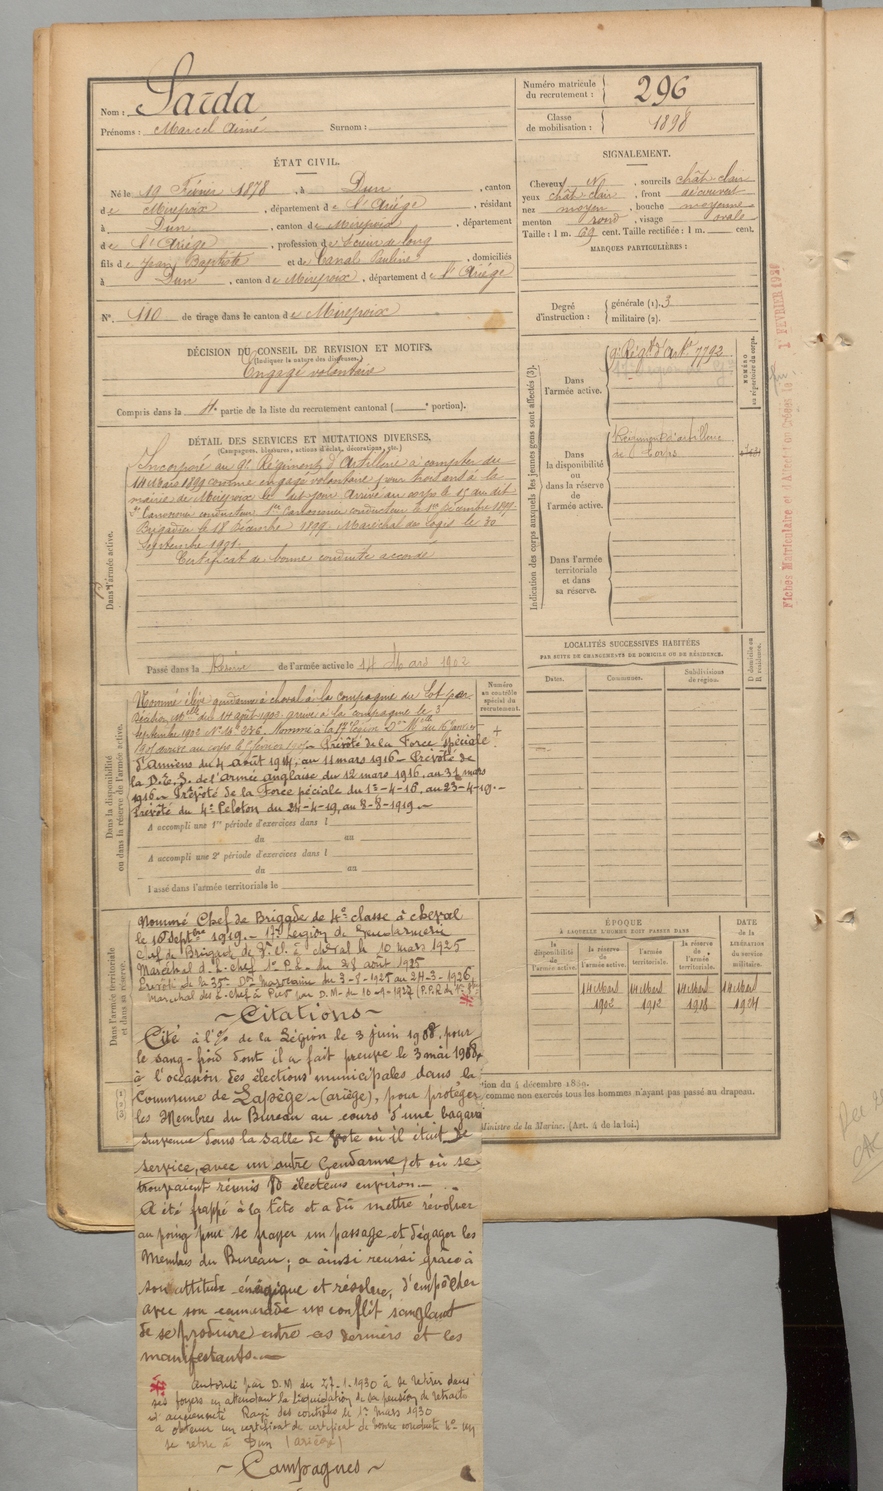 Nom : Sarda
Prénoms : Marcel Aimé Surnom :
Numéro matricule du recrutement : 296
Classe de mobilisation : 1898
ÉTAT CIVIL.
Né le 19 Février 1878, à Dun, canton
de Mirepoix, département de l'Ariège, résidant
à Dun, canton de Mirepoix, département
de l'Ariège, profession de
fils de Jean Baptiste et de Canal Pauline, domiciliés
à Dun, canton de Mirepoix, département de l'Ariège
N° 110 de tirage dans le canton de Mirepoix
SIGNALEMENT.
Cheveux N, sourcils chât. clair
yeux chât. clair, front découvert
nez moyen, bouche moyenne
menton rond, visage ovale
Taille : 1 m. 69 cent. Taille rectifiée : 1 m. cent.
MARQUES PARTICULIÈRES :
Degré d'instruction : générale (1). 3
militaire (2).
DÉCISION DU CONSEIL DE REVISION ET MOTIFS.
(Indiquer la nature des dispenses.)
Engagé volontaire
Compris dans la 4e partie de la liste du recrutement cantonal ( portion).
DÉTAIL DES SERVICES ET MUTATIONS DIVERSES.
(Campagnes, blessures, actions d'éclat, décorations, etc.)
Dans l'armée active.
Incorporé au 9e Régiment d'Artillerie à compter du
14 Mars 1899 comme engagé volontaire pour trois ans à la
mairie de Mirepoix le dit jour. Arrivé au corps le 15 du dit
2e Canonnier conducteur. 1er Canonnier conducteur le 1er Décembre 1899
Brigadier le 18 Décembre 1899. Maréchal des Logis le 30
Septembre 1901.
Certificat de bonne conduite accordé
Passé dans la Réserve de l'armée active le 14 Mars 1902
Indication des corps auxquels les jeunes gens sont affectés (3).
NUMÉRO au répertoire du corps.
Dans l'armée active.
9e Régt d'Art. 7792
Dans la disponibilité ou dans la réserve de l'armée active.
Régiment d'artillerie
de Corps
Dans l'armée territoriale et dans sa réserve.
Fiches Matriculaire et d'Affectation Créées le 1 FEVRIER
LOCALITÉS SUCCESSIVES HABITÉES
PAR SUITE DE CHANGEMENTS DE DOMICILE OU DE RÉSIDENCE.
Dates. Communes. Subdivisions de région. D domicile ou R résidence.
Numéro au contrôle spécial du recrutement.
Dans la disponibilité ou dans la réserve de l'armée active.
Nommé élève gendarme à cheval à la compagnie du Lot par
décision Mlle des 14 août 1902. arrivé à la compagnie le 3
Septembre 1902 N° Nommé à la 17e Légion Don Mlle du 16 Janvier
arrivé au corps le 1er février – Prévôté de la Force Spéciale
d'Amiens du 4 août 1914, au 11 mars 1916 – Prévôté de
la D.E.S. de l'armée anglaise du 12 mars 1916, au 31 mars
1916 – Prévôté de la Force péciale du 1er-4-16, au 23-4-19. –
Prévôté du 4e Peloton du 24-4-19, au 8-8-1919. –
A accompli une 1re période d'exercices dans l
du au
A accompli une 2e période d'exercices dans l
du au
Passé dans l'armée territoriale le
Dans l'armée territoriale et dans sa réserve.
Nommé Chef de Brigade de 4e classe à cheval
le 16 septbre 1919. – 17e Légion de Gendarmerie
Chef de Brigade de 3e Cl. à cheval le 10 mars 1925
Maréchal d. L. chef 1er P.E. du 28 août 1925
Prévôté de la 35e Don Marocaine du 3-8-1925 au 24-3-1926.
Maréchal des L. Chef à Pied par D.M. du 10-9-1927
ÉPOQUE
À LAQUELLE L'HOMME DOIT PASSER DANS
DATE de la LIBÉRATION du service militaire.
la disponibilité de l'armée active. la réserve de l'armée active. l'armée territoriale. la réserve de l'armée territoriale.
14 Mars 14 Mars 14 Mars 14 Mars
1902 1912 1918 1924
tion du 4 décembre 1889.
comme non exercés tous les hommes n'ayant pas passé au drapeau.
Ministre de la Marine. (Art. 4 de la loi.)
~ Citations ~
Cité à l'% de la Légion de 3 juin 1908, pour
le sang-froid dont il a fait preuve le 3 mai 1908,
à l'occasion des élections municipales dans la
Commune de Lapège – (ariège), pour protéger
les Membres du Bureau au cours d'une bagarre
survenue dans la salle de vote où il était de
service, avec un autre Gendarme, et où se
trouvaient réunis 80 électeurs environ –
A été frappé à la tête et a dû mettre révolver
au poing pour se frayer un passage et dégager les
Membres du Bureau ; a ainsi réussi grâce à
son attitude énergique et résolue, d'empêcher
avec son camarade un conflit sanglant
de se produire entre ces derniers et les
manifestants. —
Autorisé par D.M du 27.1.1930 à se retirer dans
ses foyers en attendant la liquidation de sa pension de retraite
d'ancienneté Rayé des contrôles le 1er mars 1930
a obtenu un certificat de certificat de bonne conduite
se retire à Dun (ariège)
~ Campagnes ~